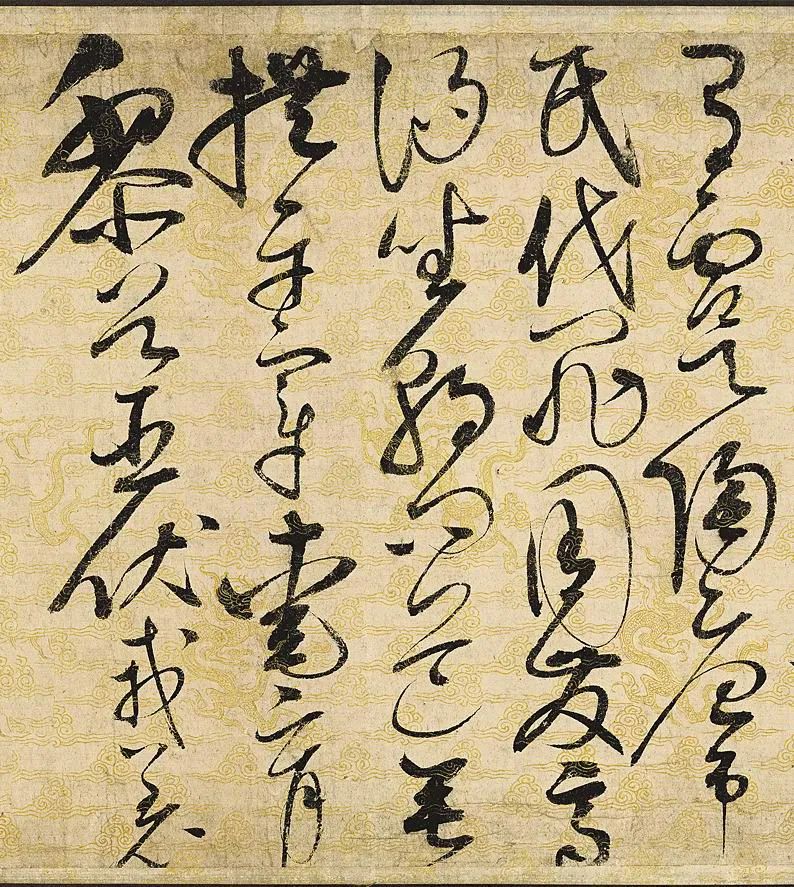 有虞陶唐弔
民伐罪周發商
湯坐朝問道垂
拱平章愛育
黎首臣伏戎羌